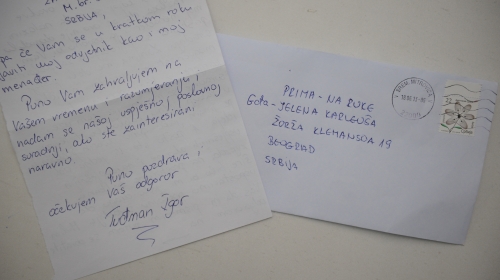 M. br.
SRBIJA,
pa će Vam se u kratkom roku
javiti moj odvjetnik kao i moj
menađer.
Puno Vam zahvaljujem na
Vašem vremenu i razumjevanju i
nadam se našoj uspješnoj poslovnoj
suradnji, ako ste zainteresirani
naravno.
Puno pozdrava i
očekujem Vaš odgovor
Tuđman Igor
PRIMA - NA RUKE
Gđa - JELENA KARLEUŠA
ŽORŽA KLEMANSOA 19
BEOGRAD
SRBIJA